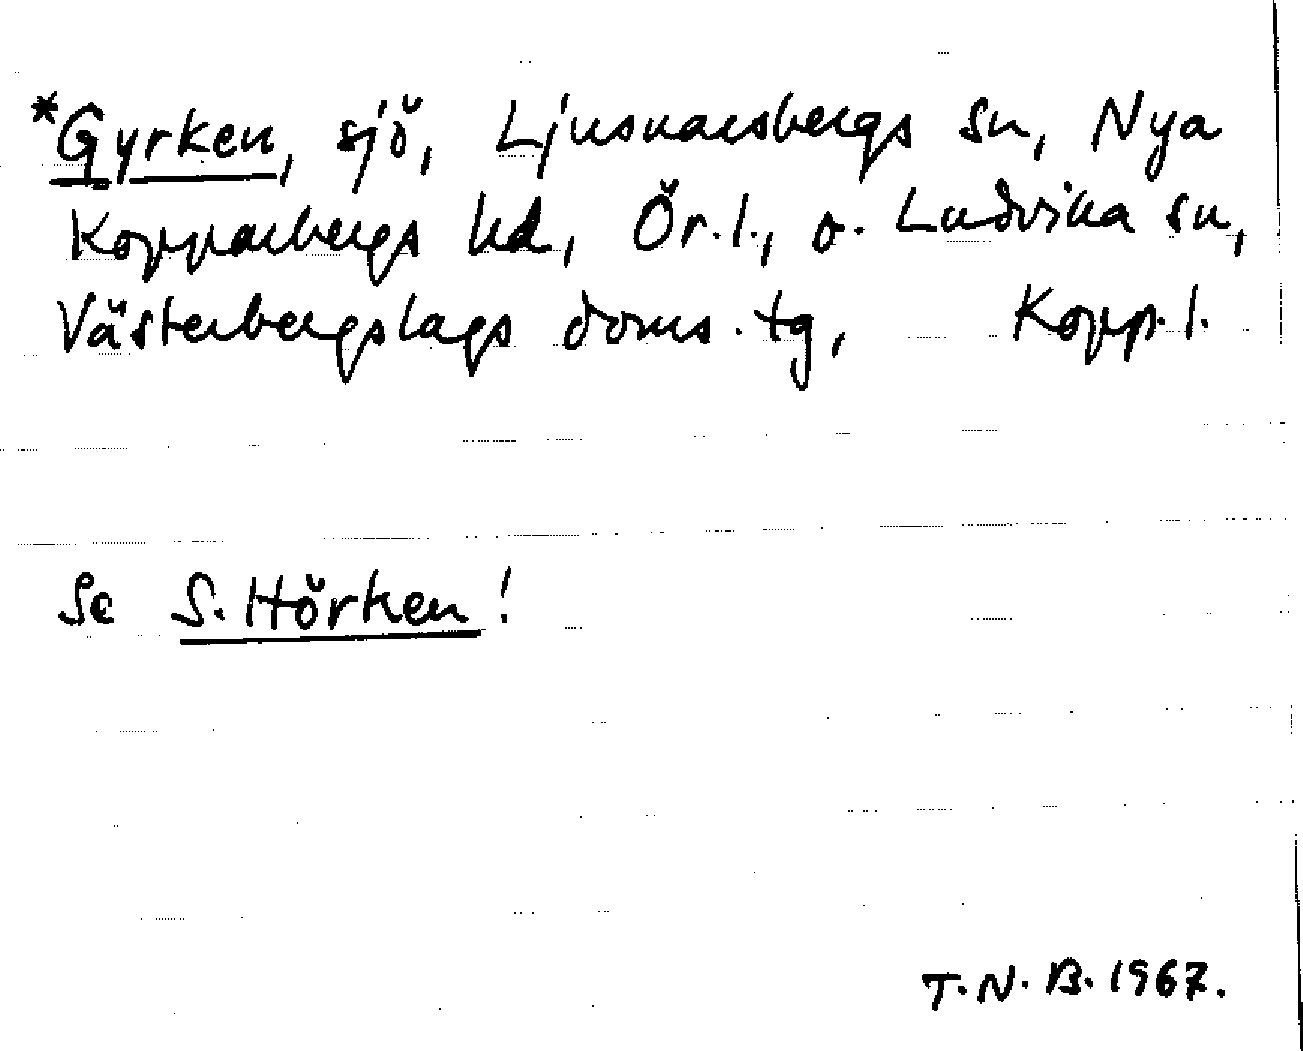 *Gyrken, sjö, Ljusnarsbergs sn, Nya
Kopparbergs hd, Ör.l., o. Ludvika sn,
Västerbergslags doms.tg, Kopp.l.
Se S. Hörken!
T.N.B. 1967.